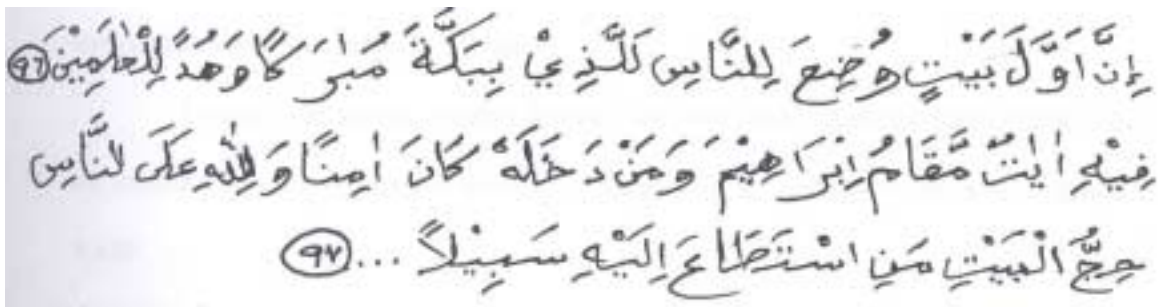 اِنَّ اَوَّلَ بَيْتٍ وُضِعَ لِلنَّاسِ لَلَّذِيْ بِبَكَّةَ مُبٰرَكًا وَهُدً لِلْعٰلَمِيْنَ ۹۶
فِيْهِ اٰيٰتٌ مَّقَامُ اِبْرَاهِيْمَ وَمَنْ دَخَلَهٗ كَانَ اٰمِنًا وَلِلّٰهِ عَلَى لنَّاسِ
حِجُّ الْبَيْتِ مَنِ اسْتَطَاعَ اِلَيْهِ سَبِيْلًا ... ۹۷